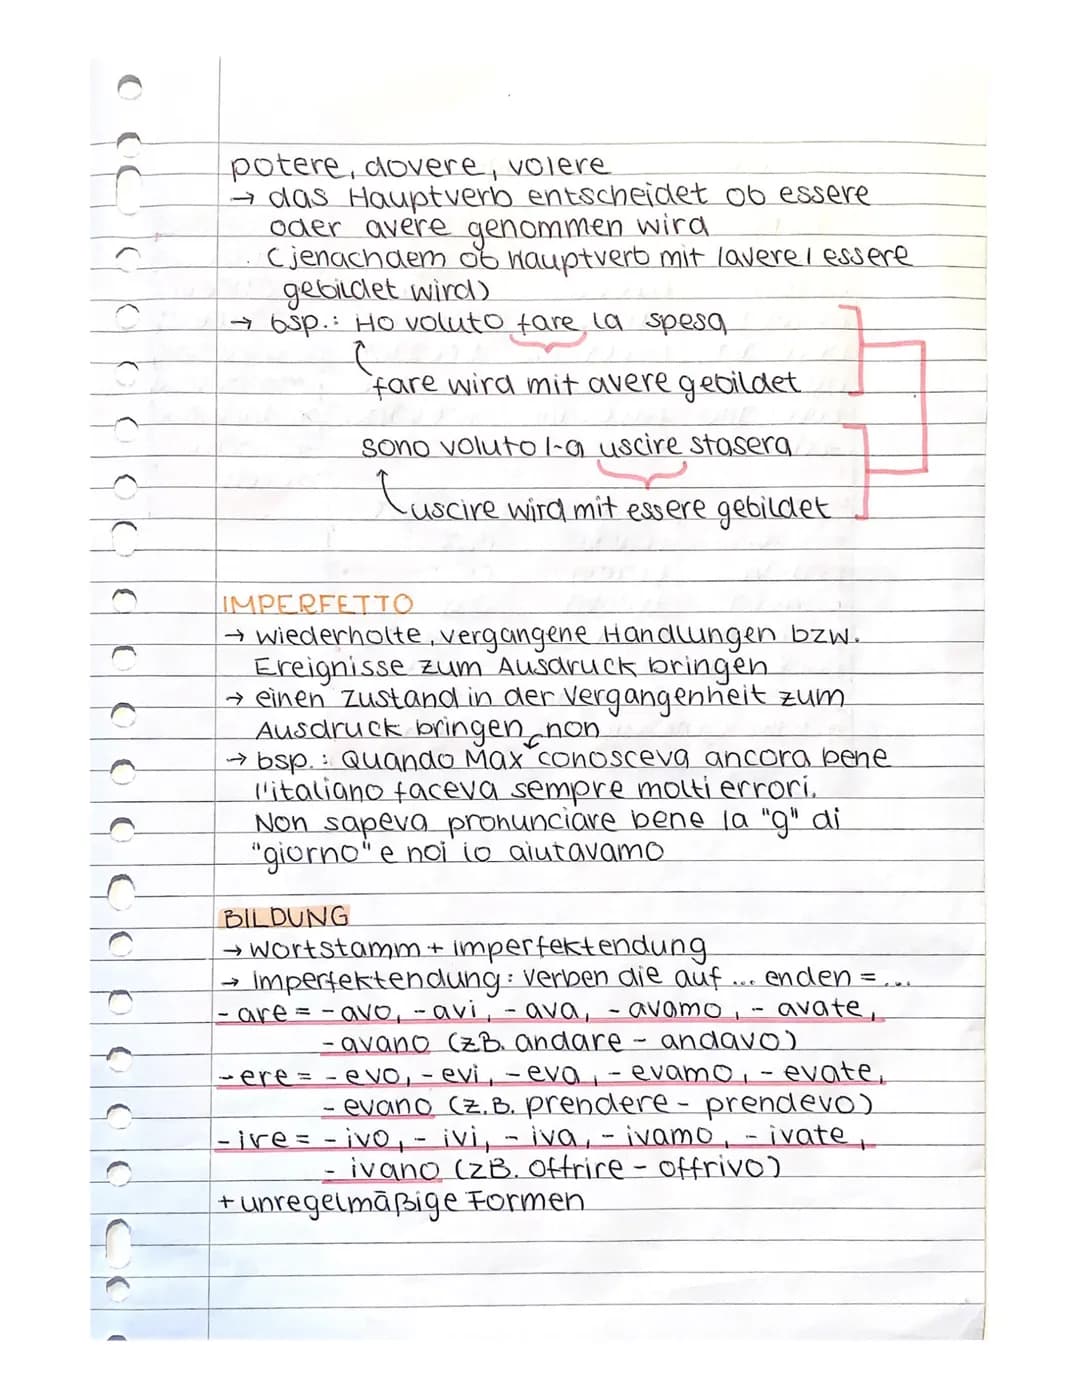 potere, dovere, volere
→ das Hauptverb entscheidet ob essere
oder avere genommen wird
(jenachdem ob Hauptverb mit /avere/ essere
gebildet wird)
→ bsp.: Ho voluto fare la spesa
fare wird mit avere gebildet
sono voluto/-a uscire stasera
uscire wird mit essere gebildet
IMPERFETTO
→ wiederholte, vergangene Handlungen bzw.
Ereignisse zum Ausdruck bringen
→ einen Zustand in der Vergangenheit zum
Ausdruck bringen
non
→ bsp.: Quando Max conosceva ancora bene
l'italiano faceva sempre molti errori.
Non sapeva pronunciare bene la "g" di
"giorno" e noi lo aiutavamo
BILDUNG
→ Wortstamm + imperfektendung
→ Imperfektendung: Verben die auf ... enden = ...
- are = - avo, - avi, - ava, - avamo, - avate,
- avano (zB. andare - andavo)
- ere = - evo, - evi, - eva, - evamo, - evate,
- evano (z.B. prendere - prendevo)
- ire = - ivo, - ivi, - iva, - ivamo, - ivate,
- ivano (zB. offrire - offrivo)
+ unregelmäßige Formen